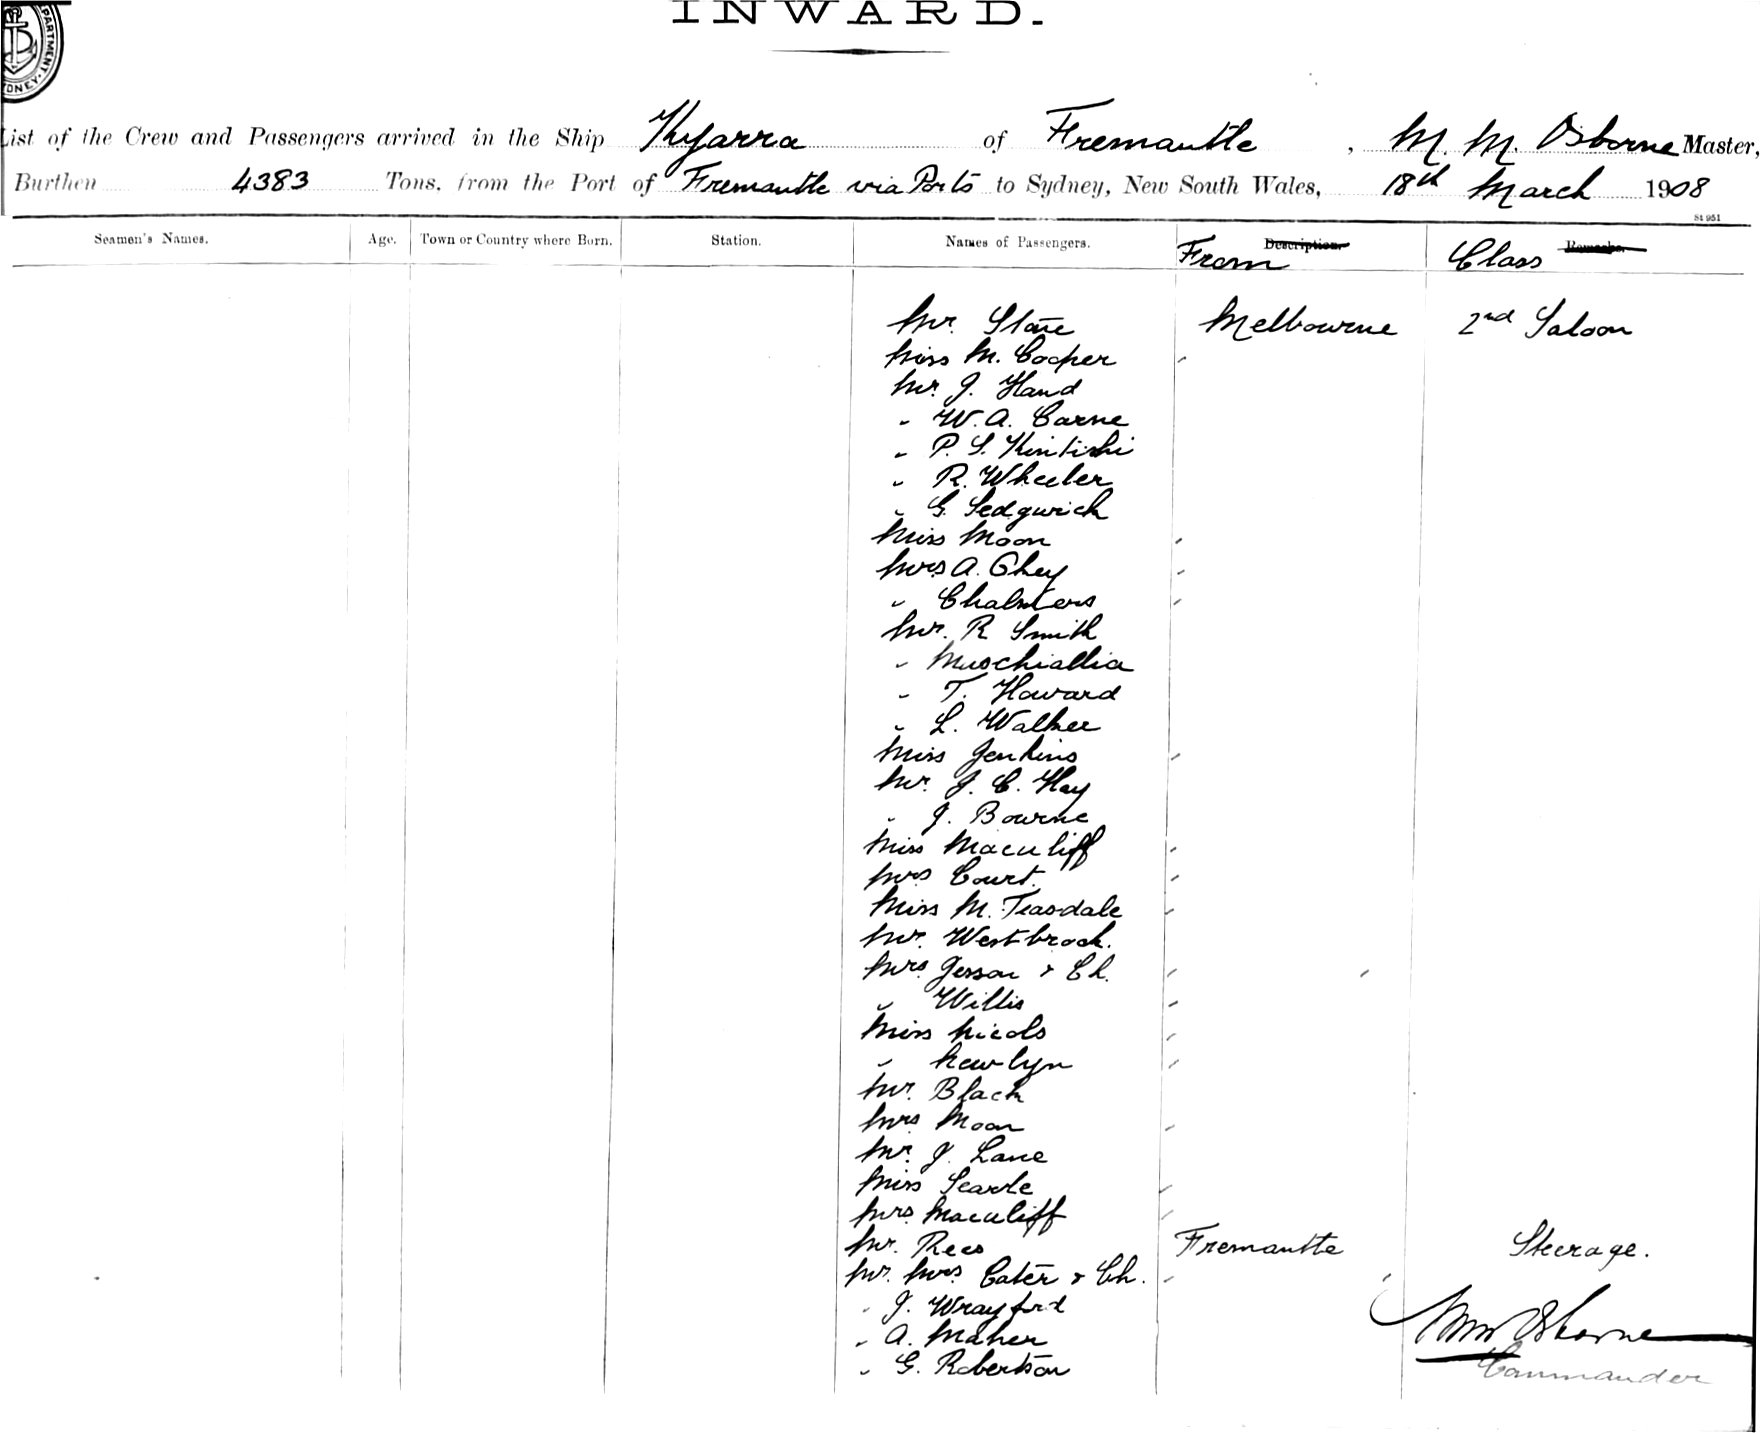 INWARD.
PARTMENT. SYDNEY
List of the Crew and Passengers arrived in the Ship Kyarra of Fremantle, M. M. Osborne Master,
Burthen 4383 Tons, from the Port of Fremantle via Ports to Sydney, New South Wales, 18th March 1908
St 951
Seamen's Names. Age. Town or Country where Born. Station. Names of Passengers. From Description. Class Remarks.
Mr. Stone Melbourne 2nd Saloon
Miss M. Cooper "
Mr. J. Hand
" W. A. Carne
" P. S. Kintishi
" R. Wheeler
" G. Sedgwick
Miss Moon "
Mrs A. Ohey "
" Chalmers "
Mr. R Smith
" Muschiallia
" T. Howard
" L. Walker
Miss Jenkins "
Mr. J. C. Hay
" J. Bourne
Miss Macculiff "
Mrs Court. "
Miss M. Teasdale "
Mr. Westbrook.
Mrs Jesson & Ch. " "
" Willis "
Miss Nicols "
" Newlyn "
Mr. Black
Mrs Moon "
Mr. J. Lane
Miss Searle "
Mrs. Macculiff "
Mr. Rees Fremantle Steerage.
Mr. Mrs. Cater & Ch. " "
" J. Wrayford
" A. Maher
" G. Robertson
M M Osborne
Commander